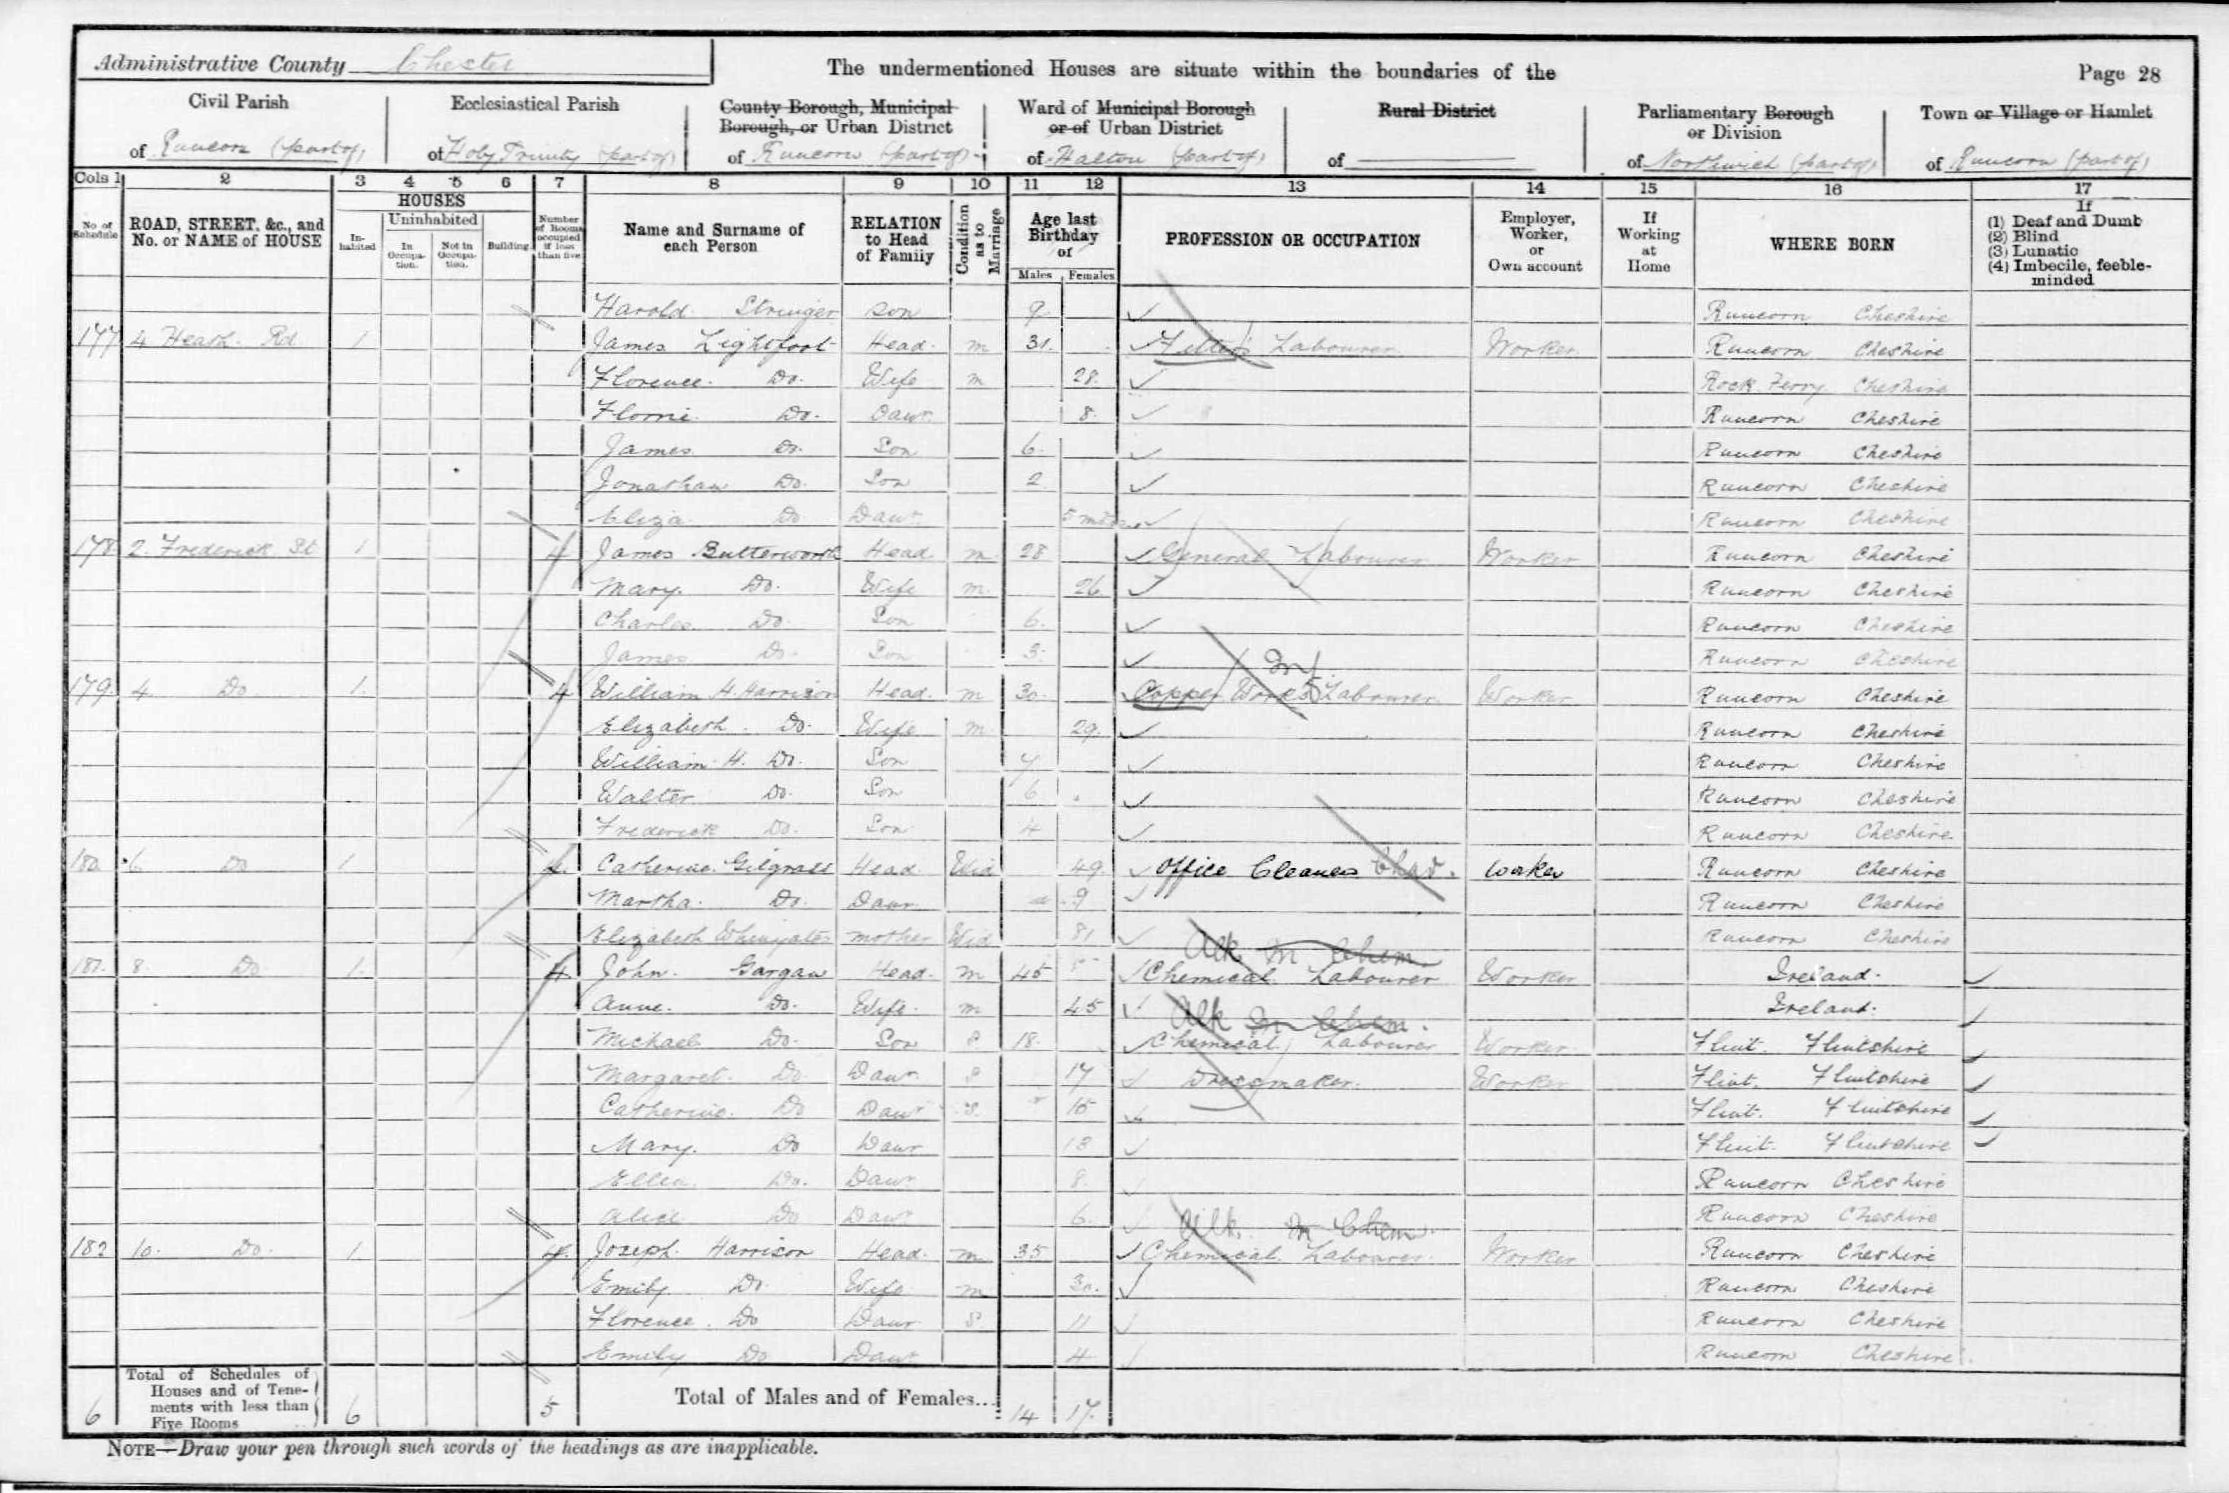 Administrative County Chester
The undermentioned Houses are situate within the boundaries of the
Page 28
Civil Parish
of Runcorn (part of)
Ecclesiastical Parish
of Holy Trinity (part of)
County Borough, Municipal
Borough, or Urban District
of Runcorn (part of)
Ward of Municipal Borough
or of Urban District
of Halton (part of)
Rural District
of
Parliamentary Borough
or Division
of Northwich (part of)
Town or Village or Hamlet
of Runcorn (part of)
Cols 1 2 3 4 5 6 7 8 9 10 11 12 13 14 15 16 17
No of Schedule
ROAD, STREET, &c., and No. or NAME of HOUSE
HOUSES
Inhabited
Uninhabited
In Occupation.
Not in Occupation.
Building
Number of Rooms occupied if less than five
Name and Surname of each Person
RELATION to Head of Family
Condition as to Marriage
Age last Birthday of
Males Females
PROFESSION OR OCCUPATION
Employer, Worker, or Own account
If Working at Home
WHERE BORN
If
(1) Deaf and Dumb
(2) Blind
(3) Lunatic
(4) Imbecile, feeble-minded
Harold Stringer Son 9 Runcorn Cheshire
177 4 Heath Rd 1 James Lightfoot Head m 31 Fitter's Labourer Worker Runcorn Cheshire
Florence Do. Wife m 28 Rock Ferry Cheshire
Florrie Do. Daur 8 Runcorn Cheshire
James Do. Son 6 Runcorn Cheshire
Jonathan Do. Son 2 Runcorn Cheshire
Eliza Do Daur 5 mths Runcorn Cheshire
178 2 Frederick St 1 4 James Butterworth Head m 28 General Labourer Worker Runcorn Cheshire
Mary Do. Wife m 26 Runcorn Cheshire
Charles Do. Son 6 Runcorn Cheshire
James Do. Son 3 Runcorn Cheshire
179 4 Do 1 4 William H. Harrison Head m 30 Copper Works Labourer Worker Runcorn Cheshire
Elizabeth Do. Wife m 29 Runcorn Cheshire
William H. Do. Son 7 Runcorn Cheshire
Walter Do. Son 6 Runcorn Cheshire
Frederick Do. Son 4 Runcorn Cheshire
180 6 Do 1 4 Catherine Gilgrass Head Wid 49 Office Cleaner Char. Worker Runcorn Cheshire
Martha Do. Daur 9 Runcorn Cheshire
Elizabeth Whinyates mother Wid 81 Runcorn Cheshire
Alk m Chem
181 8 Do 1 4 John Gargan Head m 45 Chemical Labourer Worker Ireland
Anne Do. Wife m 45 Ireland
Alk m Chem.
Michael Do. Son S 18 Chemical Labourer Worker Flint Flintshire
Margaret Do. Daur S 17 Dressmaker Worker Flint Flintshire
Catherine Do Daur S 15 Flint Flintshire
Mary Do Daur 13 Flint Flintshire
Ellen Do. Daur 8 Runcorn Cheshire
Alice Do Daur 6 Runcorn Cheshire
Alk. m Chem.
182 10 Do. 1 4 Joseph Harrison Head m 35 Chemical Labourer Worker Runcorn Cheshire
Emily Do. Wife m 30 Runcorn Cheshire
Florence Do Daur S 11 Runcorn Cheshire
Emily Do Daur 4 Runcorn Cheshire
6 Total of Schedules of Houses and of Tenements with less than Five Rooms 6 5 Total of Males and of Females... 14 17
NOTE—Draw your pen through such words of the headings as are inapplicable.